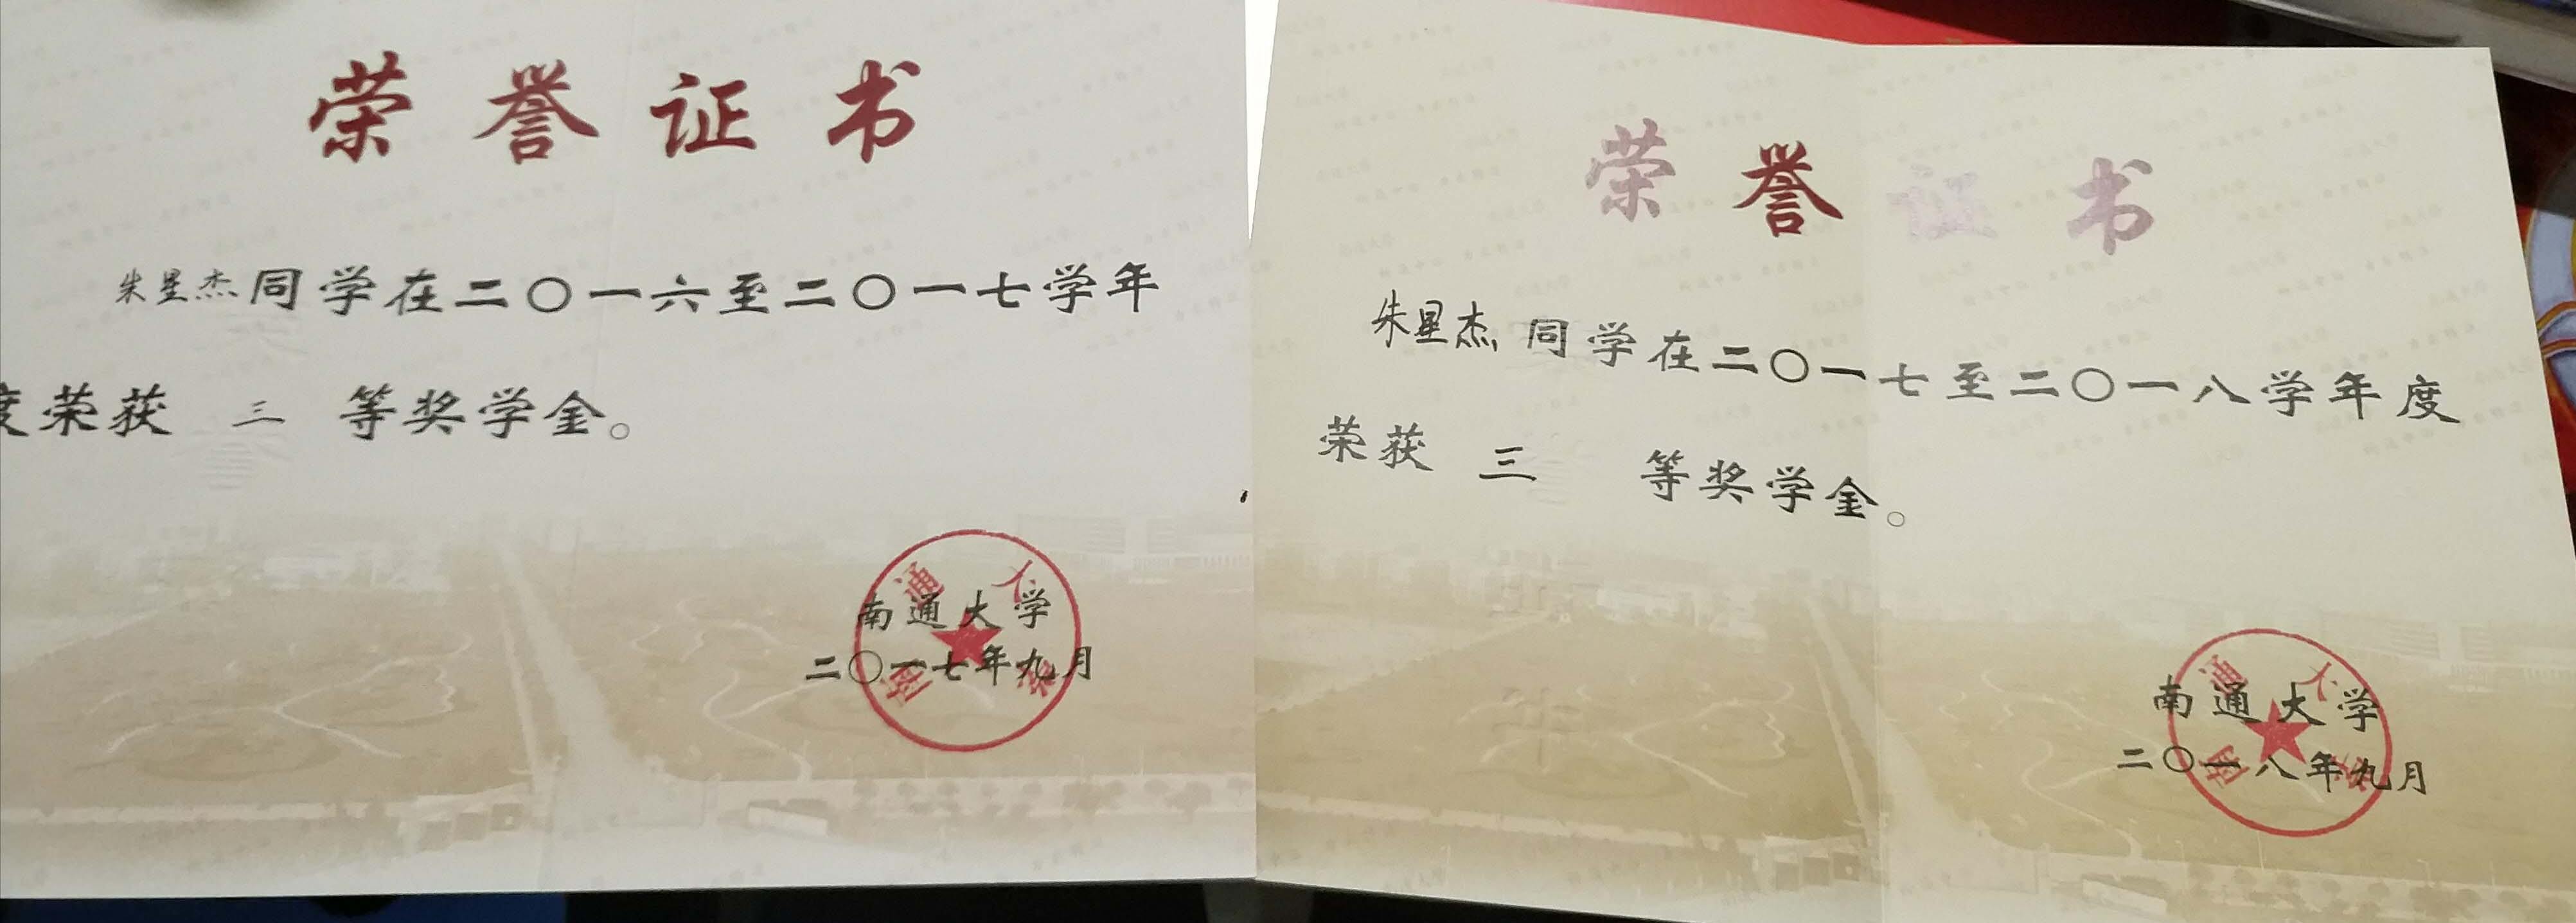 荣誉证书
朱星杰同学在二〇一六至二〇一七学年
度荣获 三 等奖学金。
南通大学
二〇一七年九月
南通大学
荣誉证书
朱星杰同学在二〇一七至二〇一八学年度
荣获 三 等奖学金。
南通大学
二〇一八年九月
南通大学